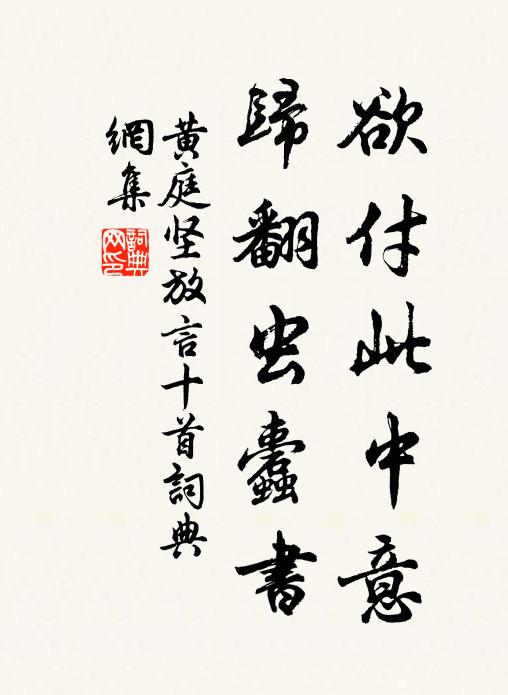 欲付此中意
歸翻虫蠹書
黄庭坚放言十首詞典
網集
詞典
网印